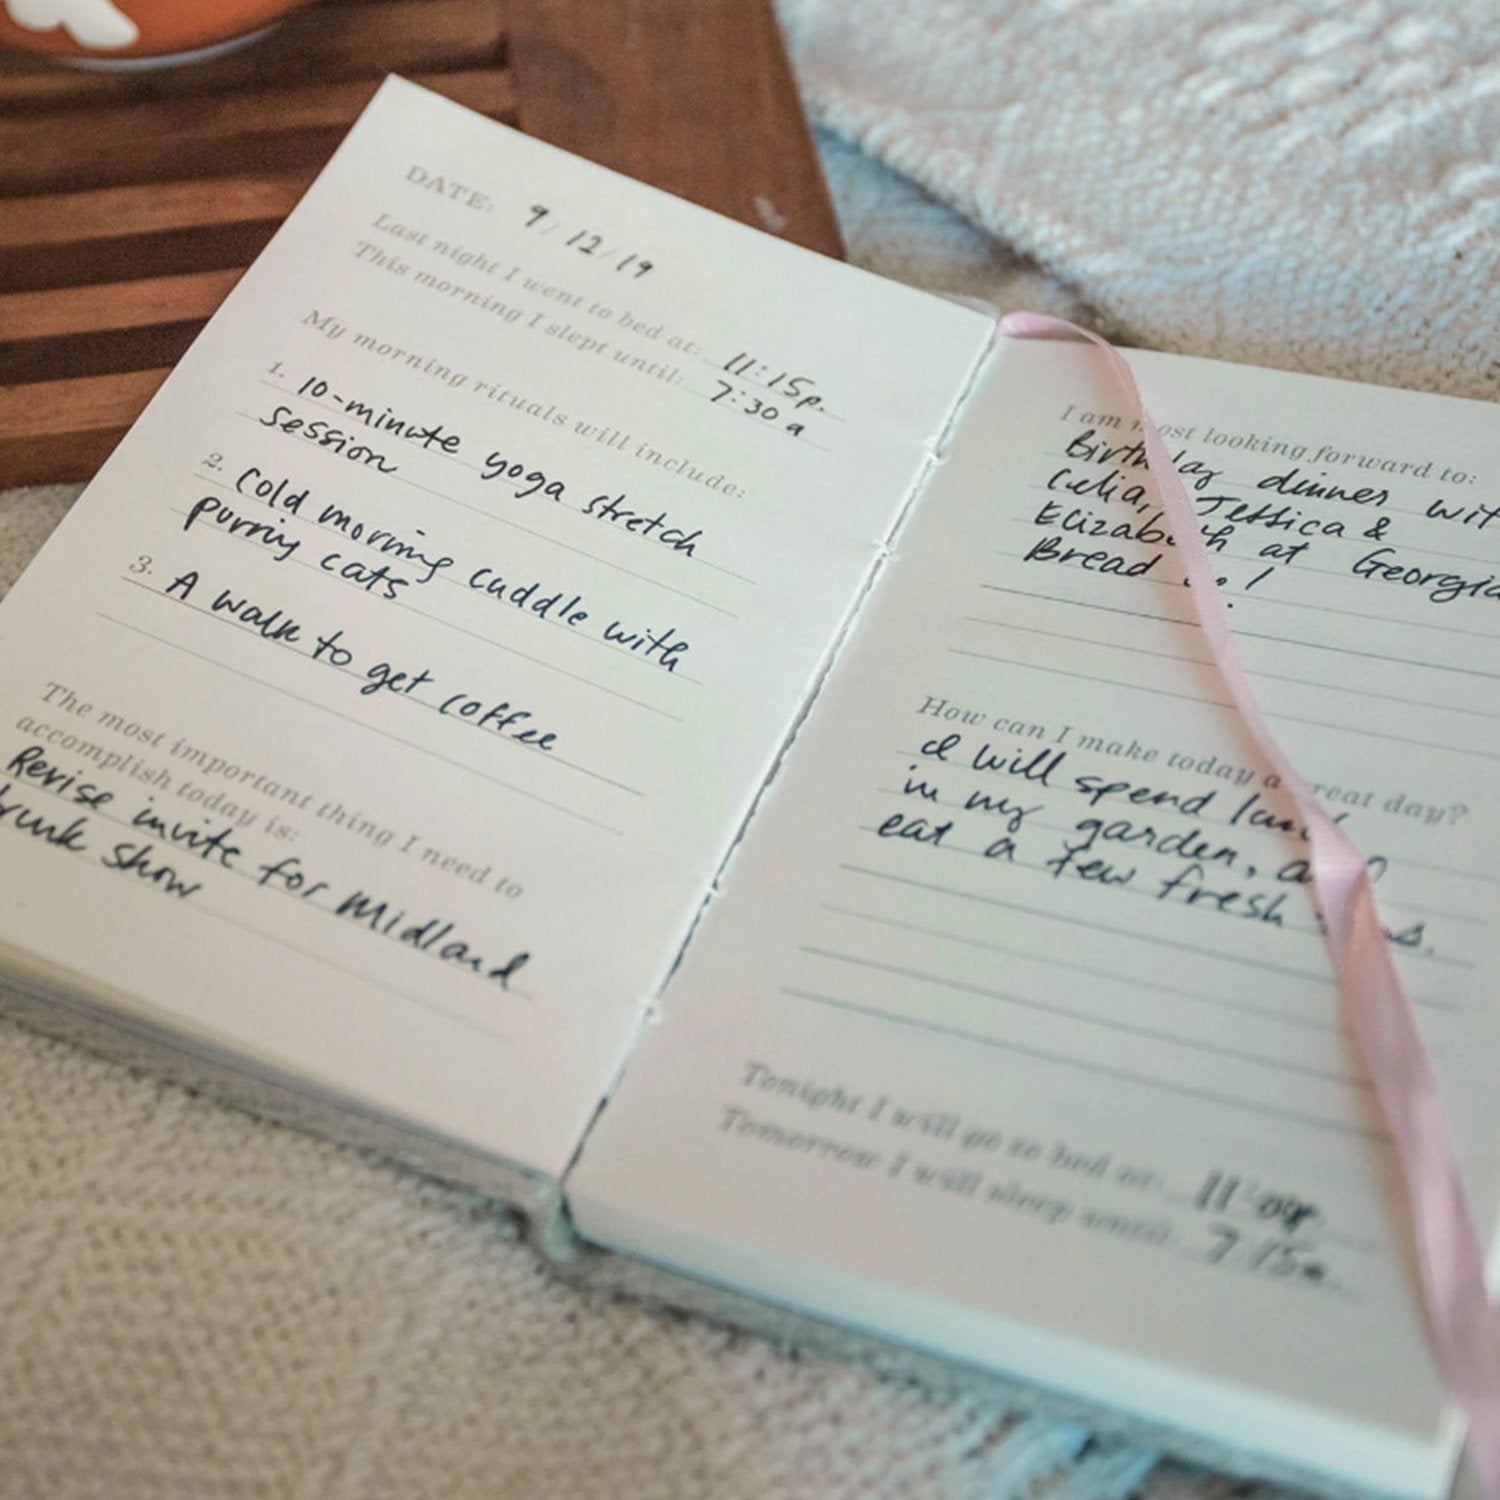 DATE: 9/12/19
Last night I went to bed at: 11:15p.
This morning I slept until: 7:30 a
My morning rituals will include:
1. 10-minute yoga stretch
session
2. Cold morning cuddle with
purring cats
3. A walk to get coffee
The most important thing I need to
accomplish today is:
Revise invite for Midland
trunk show
I am most looking forward to:
Birthday dinner with
Celia, Jessica &
Elizabeth at Georgia
Bread
How can I make today a great day?
I will spend
in my garden, and
eat a few fresh
Tonight I will go to bed at:
Tomorrow I will sleep until: 7:15a.